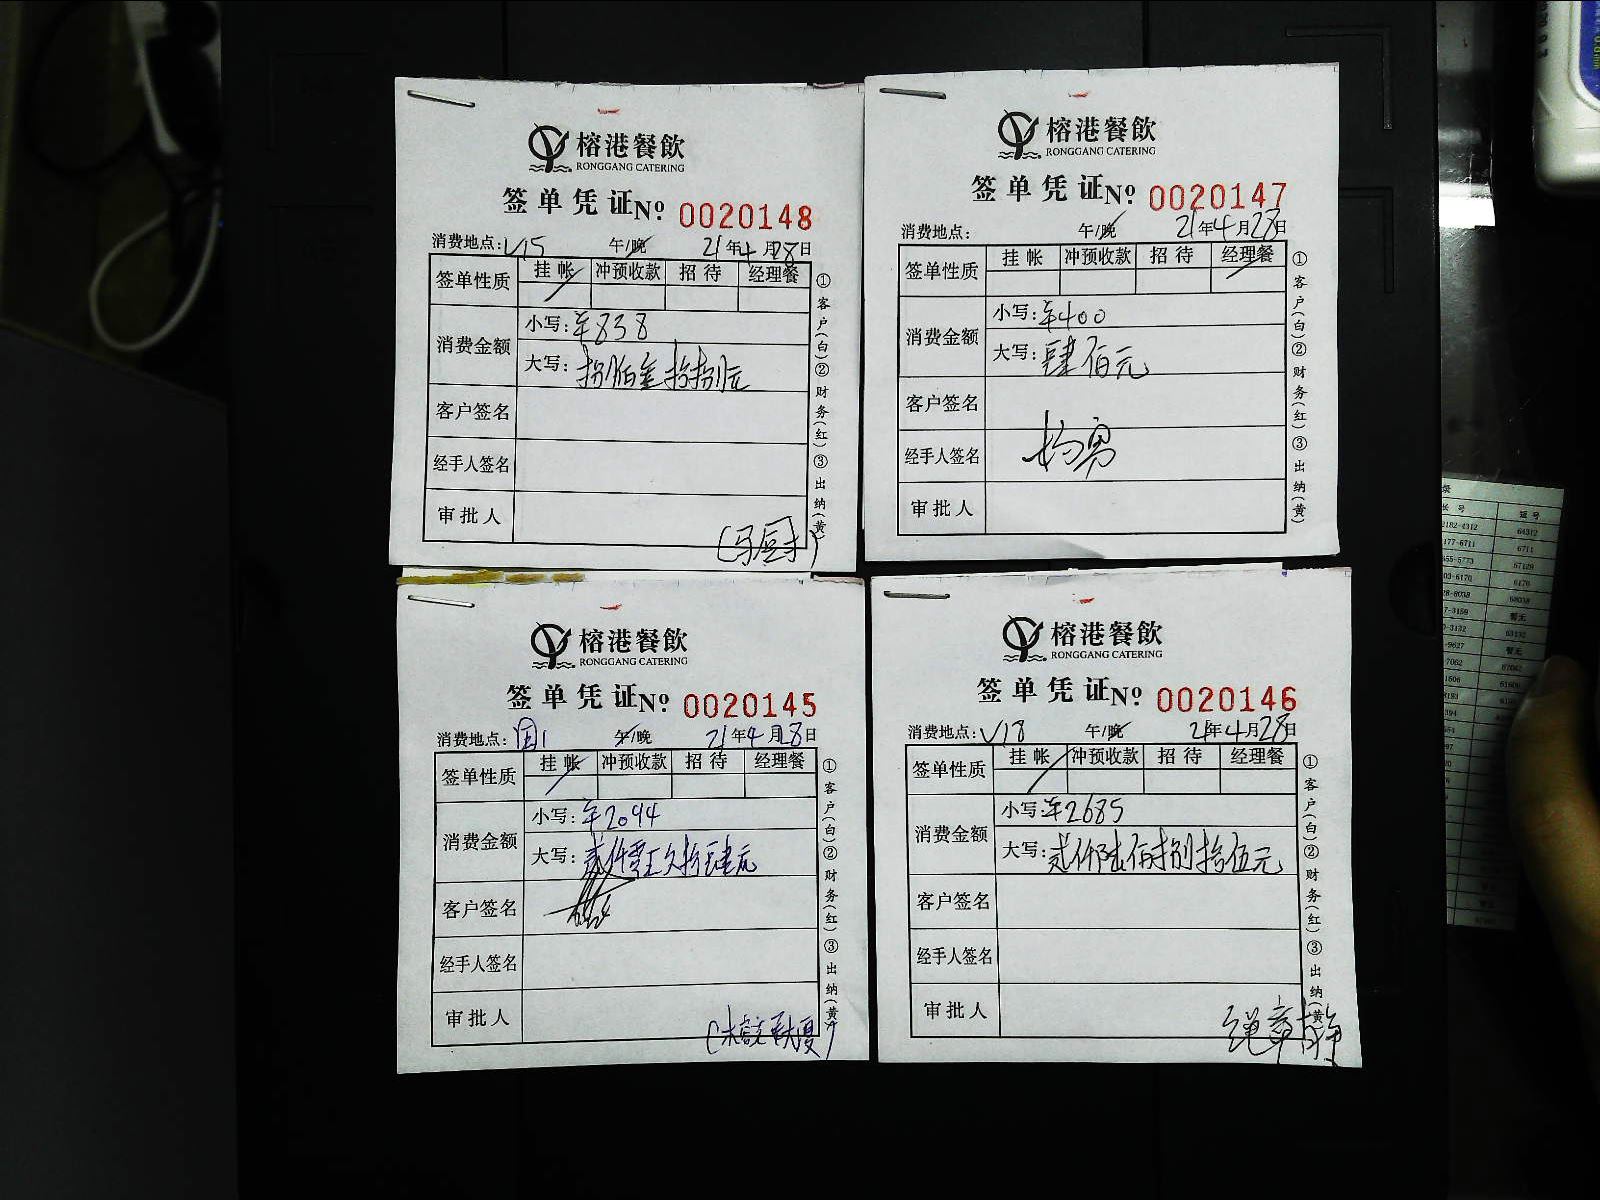 榕港餐飲
RONGGANG CATERING
签单凭证 No. 0020148
消费地点: V15 午/晚 21年4月28日
签单性质 挂帐 冲预收款 招待 经理餐
消费金额 小写: ¥838
大写: 捌佰叁拾捌元
客户签名
经手人签名
审批人
①客户(白)②财务(红)③出纳(黄)
榕港餐飲
RONGGANG CATERING
签单凭证 No. 0020147
消费地点: 午/晚 21年4月28日
签单性质 挂帐 冲预收款 招待 经理餐
消费金额 小写: ¥400
大写: 肆佰元
客户签名
经手人签名
审批人
①客户(白)②财务(红)③出纳(黄)
榕港餐飲
RONGGANG CATERING
签单凭证 No. 0020145
消费地点: 国1 午/晚 21年4月28日
签单性质 挂帐 冲预收款 招待 经理餐
消费金额 小写: ¥2094
大写: 贰仟零玖拾肆元
客户签名
经手人签名
审批人
①客户(白)②财务(红)③出纳(黄)
榕港餐飲
RONGGANG CATERING
签单凭证 No. 0020146
消费地点: V18 午/晚 21年4月28日
签单性质 挂帐 冲预收款 招待 经理餐
消费金额 小写: ¥2685
大写: 贰仟陆佰捌拾伍元
客户签名
经手人签名
审批人
①客户(白)②财务(红)③出纳(黄)
短号
64312
6711
6170